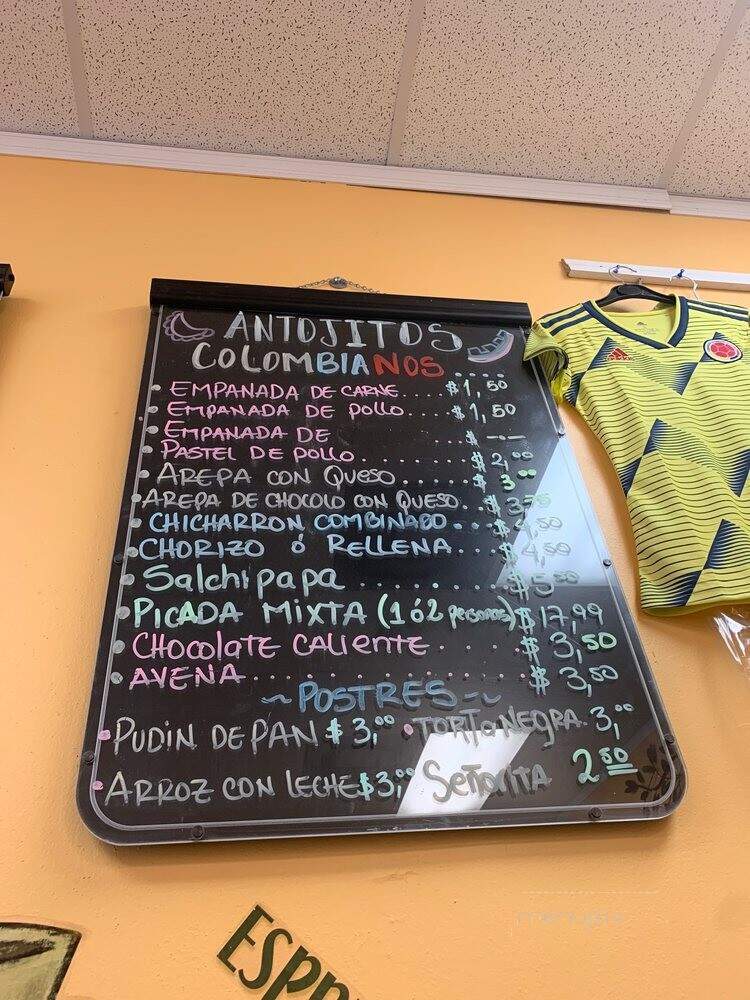 ANTOJITOS
COLOMBIANOS
EMPANADA DE CARNE....$1,50
EMPANADA DE POLLO....$1,50
EMPANADA DE $ --
PASTEL DE POLLO $2,00
AREPA CON QUESO....$ 3,00
AREPA DE CHOCOLO CON QUESO..$3,75
CHICHARRON COMBINADO..$4,50
CHORIZO ó RELLENA...$4,50
Salchipapa.......$5,50
PICADA MIXTA (1 ó 2 personas) $17,99
CHOCOLATE CALIENTE.....$3,50
AVENA...........$3,50
~POSTRES~
PUDIN DE PAN $3,00 TORTA NEGRA. 3,00
ARROZ CON LECHE $3,00 SEÑORITA 2 50
ESPR